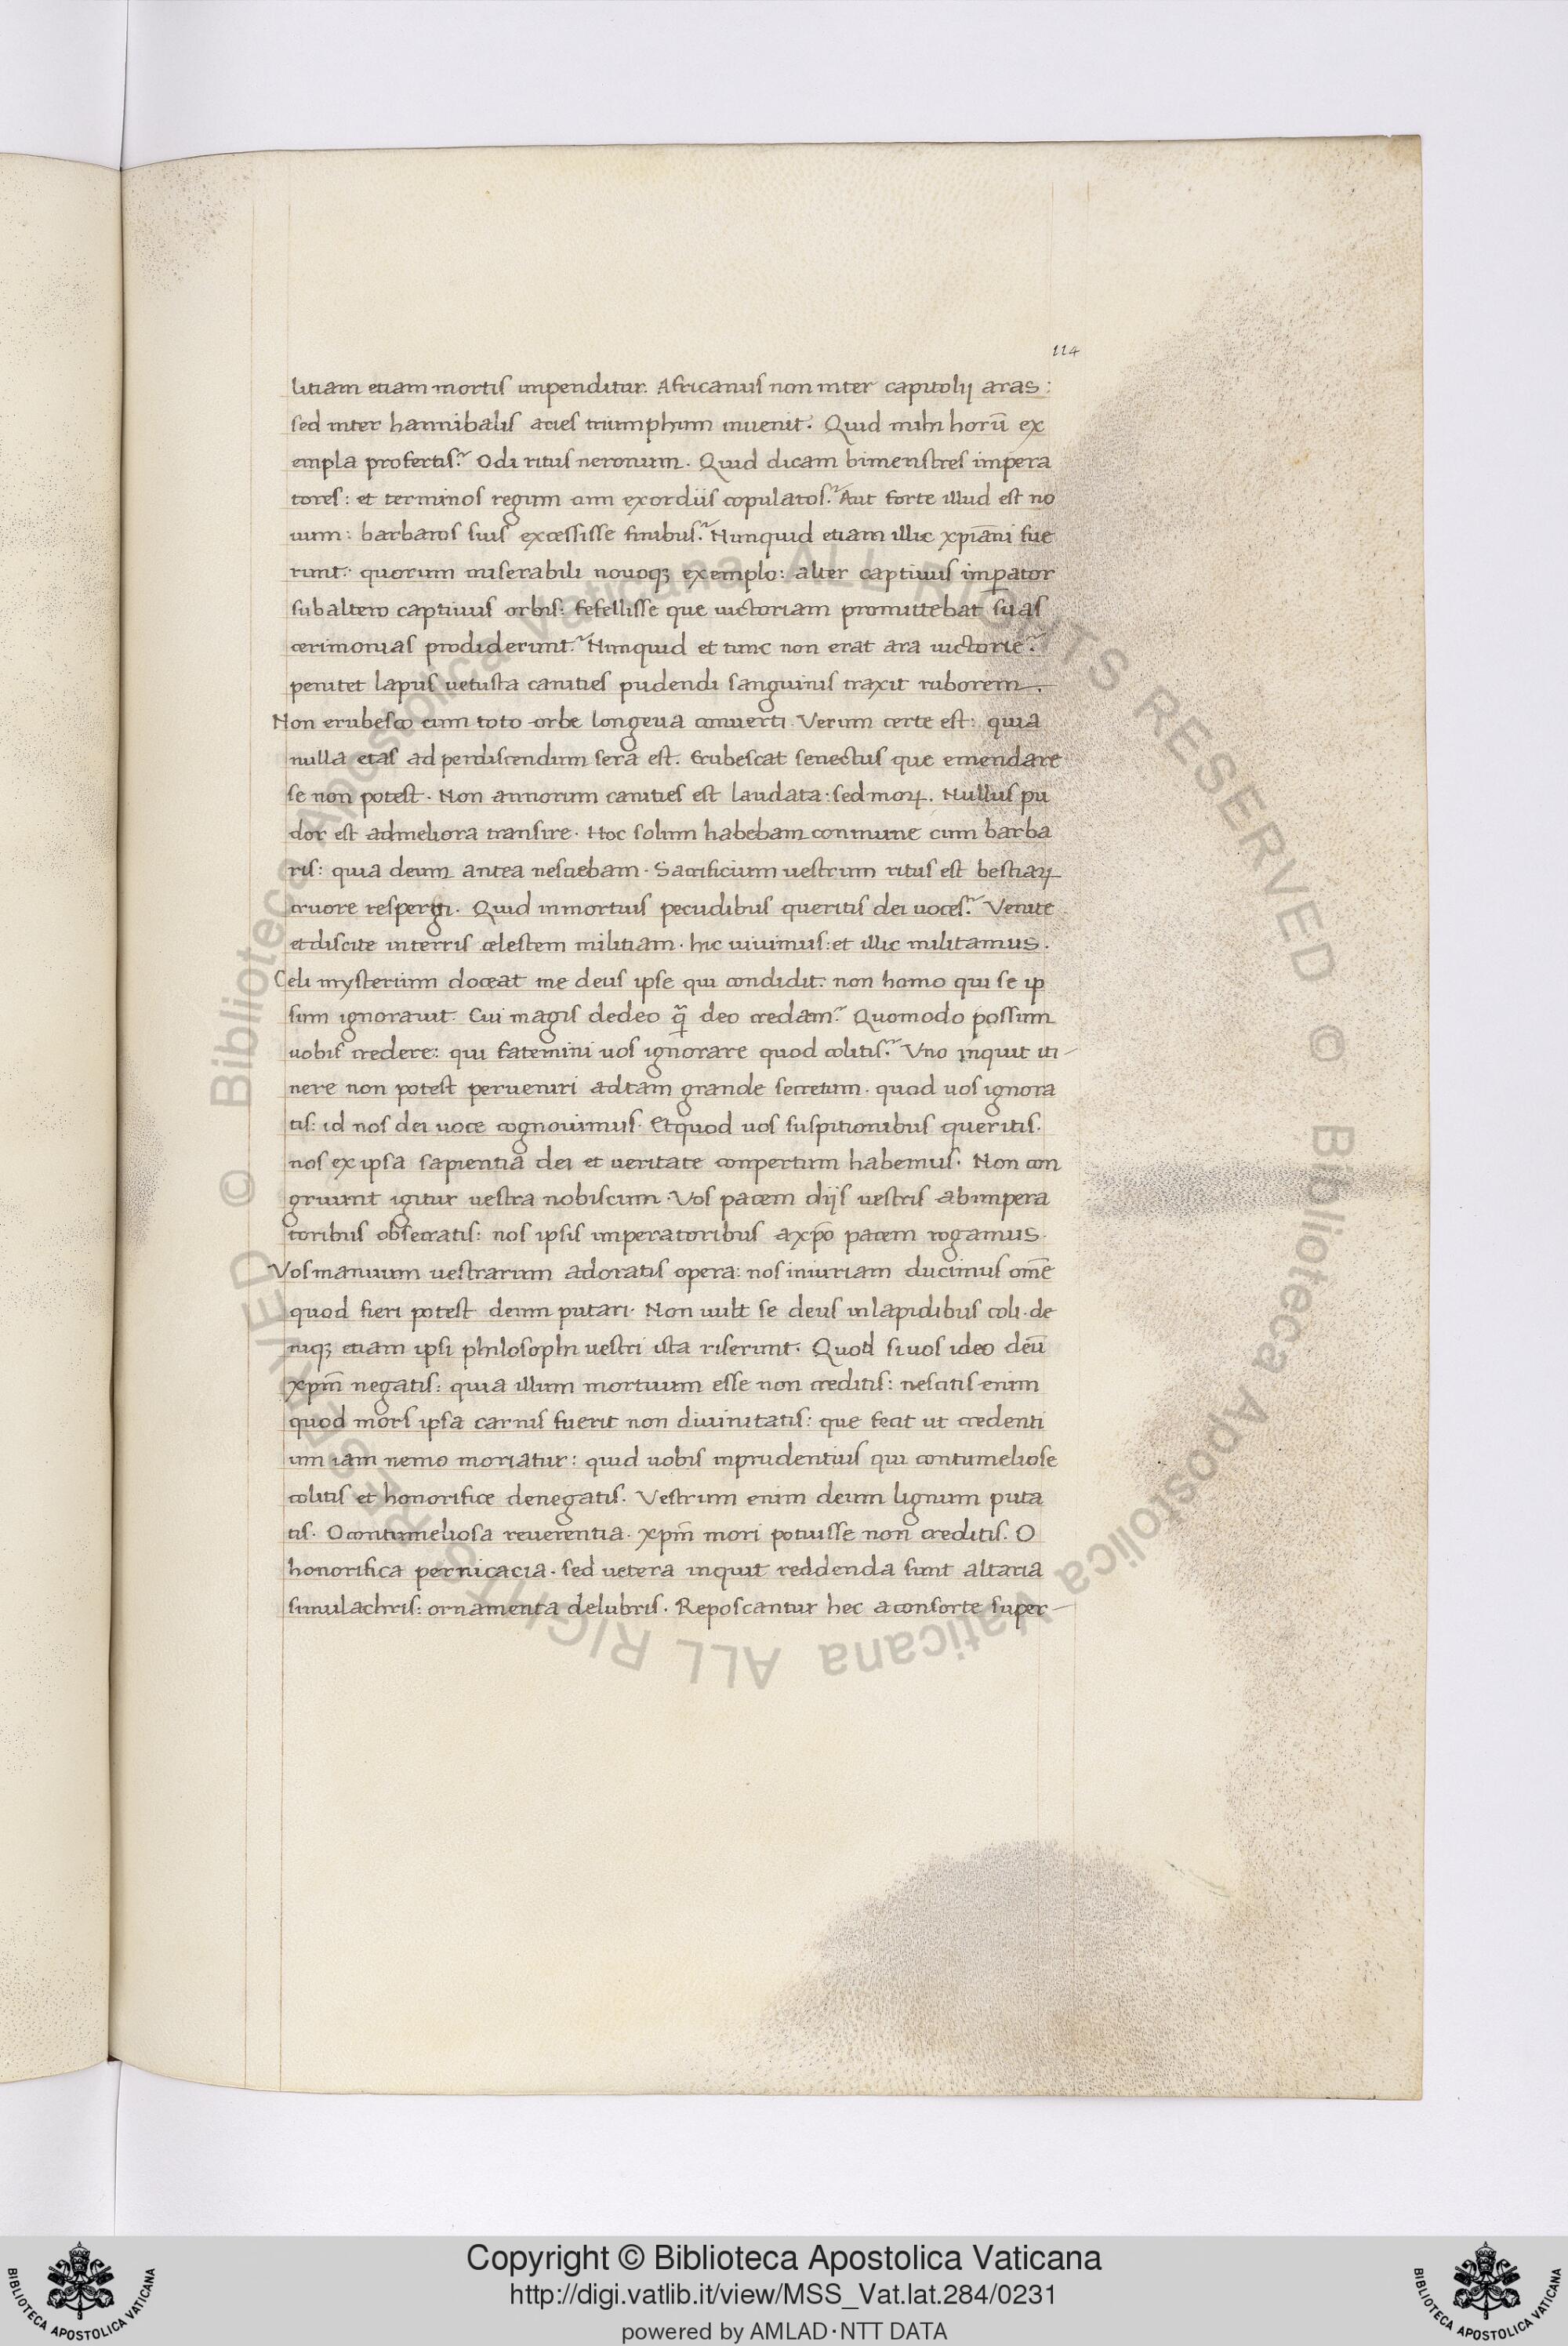 114
litiam etiam mortis impenditur. Africanus non inter capitolij aras:
sed inter hannibalis acies triumphum inuenit. Quid mihi horū ex
empla profertis? Odi ritus neronum. Quid dicam bimenstres impera
tores: et terminos regum cum exordiis copulatos? Aut forte illud est no
uum: barbaros suis excessisse finibus? Nunquid etiam illic xp̄iani fue
runt: quorum miserabili nouoq; exemplo: alter captiuus imperator
sub altero captiuus orbis: fefellisse que uictoriam promittebat suas
cerimonias prodiderunt? Nunquid et tunc non erat ara uictorie?
penitet lapsus uetusta canities pudendi sanguinis traxit ruborem.
Non erubesco cum toto orbe longeua conuerti. Verum certe est: quia
nulla etas ad perdiscendum sera est. Erubescat senectus que emendare
se non potest. Non annorum canities est laudata: sed moꝝ. Nullus pu
dor est ad meliora transire. Hoc solum habebam conmune cum barba
ris: quia deum antea nesciebam. Sacrificium uestrum ritus est bestiaꝝ
cruore respergi. Quid in mortuis pecudibus queritis dei uoces? Venite
et discite in terris celestem militiam. hic uiuimus: et illic militamus.
Celi mysterium doceat me deus ipse qui condidit: non homo qui se ip
sum ignorauit. Cui magis de deo q̄ deo credam? Quomodo possum
uobis credere: qui fatemini uos ignorare quod colitis? Vno inquit iti-
nere non potest perueniri ad tam grande secretum. quod uos ignora
tis: id nos dei uoce cognouimus. Et quod uos suspitionibus queritis.
nos ex ipsa sapientia dei et ueritate conpertum habemus. Non con
gruunt igitur uestra nobiscum. Vos pacem diis uestris ab impera
toribus obsecratis: nos ipsis imperatoribus a xp̄o pacem rogamus.
Vos manuum uestrarum adoratis opera: nos iniuriam ducimus om̄e
quod fieri potest deum putari. Non uult se deus in lapidibus coli. de
niq; etiam ipsi philosophi uestri ista riserunt. Quod si uos ideo deū
xp̄m negatis: quia illum mortuum esse non creditis: nescitis enim
quod mors ipsa carnis fuerit non diuinitatis: que fecit ut credenti
um iam nemo moriatur: quid uobis inprudentius qui contumeliose
colitis et honorifice denegatis. Vestrum enim deum lignum puta
tis. O contumeliosa reuerentia. xp̄m mori potuisse non creditis. O
honorifica pernicacia. sed uetera inquit reddenda sunt altaria
simulachris: ornamenta delubris. Reposcantur hec a consorte super-
© Biblioteca Apostolica Vaticana ALL RIGHTS RESERVED © Biblioteca Apostolica Vaticana ALL RIGHTS RESERVED
Copyright © Biblioteca Apostolica Vaticana
http://digi.vatlib.it/view/MSS_Vat.lat.284/0231
powered by AMLAD·NTT DATA
BIBLIOTECA APOSTOLICA VATICANA
BIBLIOTECA APOSTOLICA VATICANA